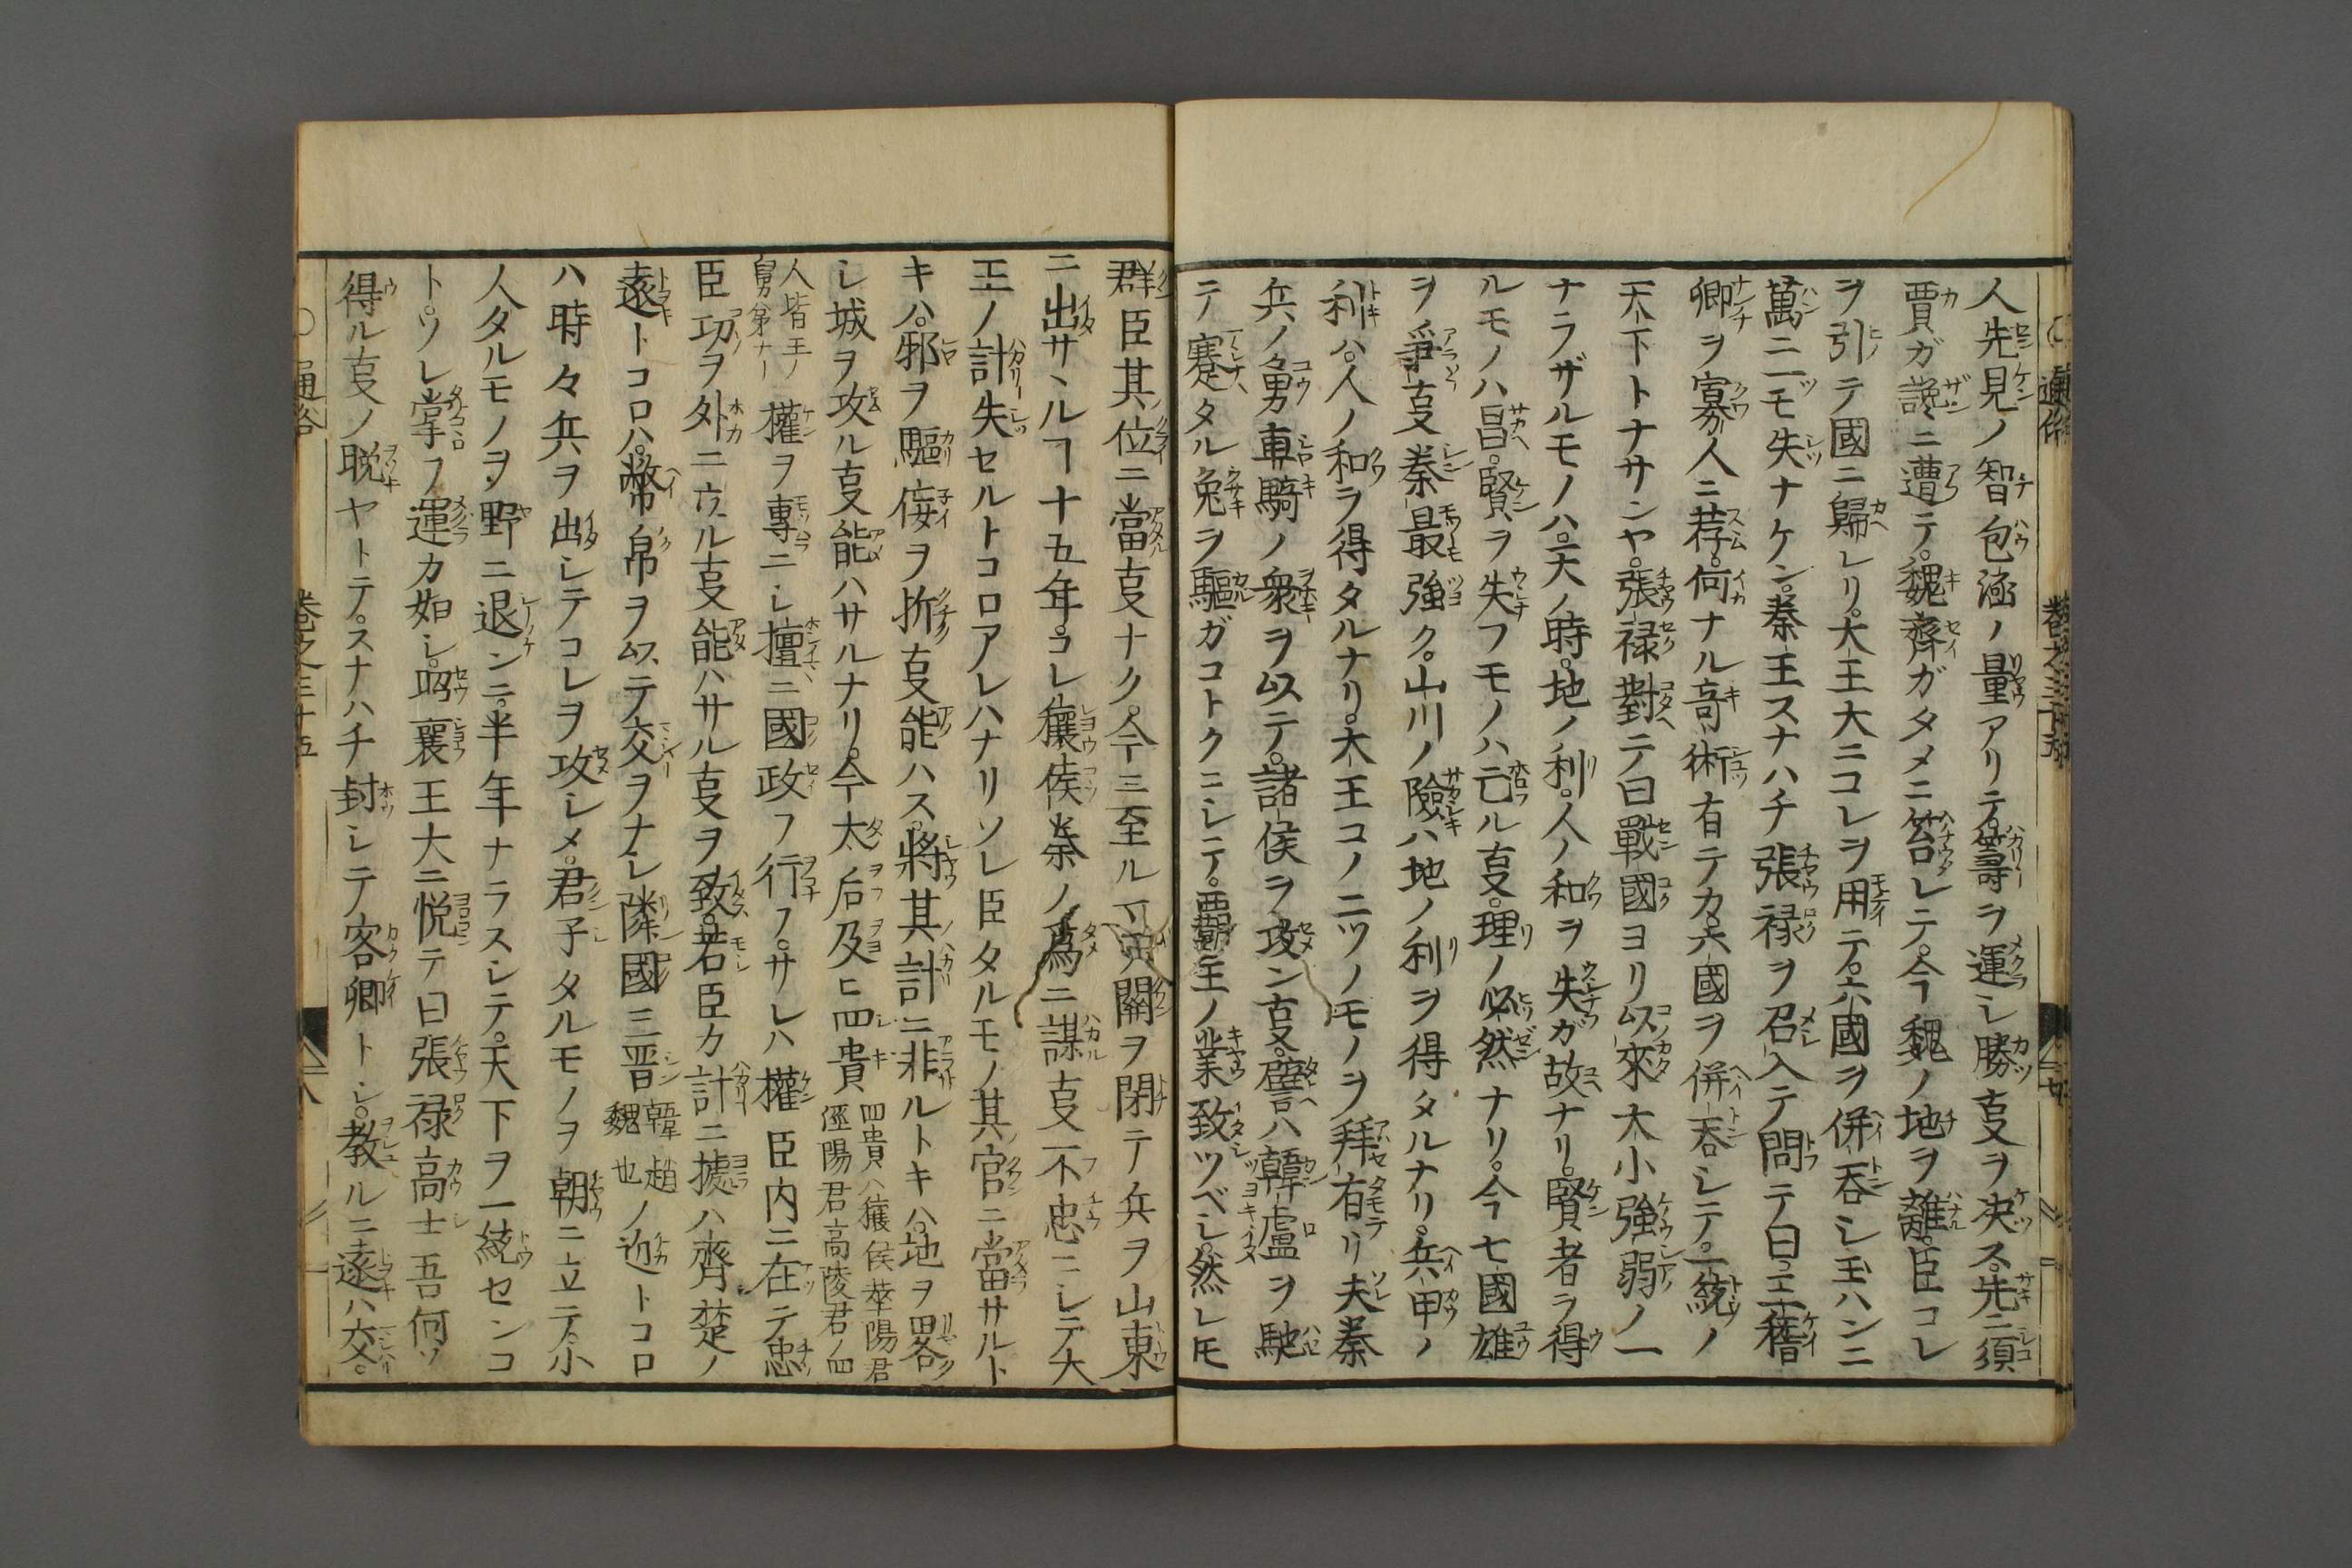 人先見ノ智包涵ノ量アリテ。籌ヲ運シ勝叓ヲ决ス。先ニ須
賈ガ讒ニ遭テ。魏齊ガタメニ笞レテ。今魏ノ地ヲ離。臣コレ
ヲ引テ國ニ歸レリ。大王大ニコレヲ用テ。六國ヲ併吞シ玉ハンニ
萬ニ一モ失ナケン。秦王スナハチ張禄ヲ召入テ問テ曰。
卿ヲ寡人ニ荐。何ナル竒術有テカ。六國ヲ併吞シテ。一統ノ
天下トナサンヤ。張禄對テ曰戰國ヨリ以來大小強弱ノ一
ナラザルモノハ。天ノ時。地ノ利。人ノ和ヲ失ガ故ナリ。賢者ヲ得
ルモノハ昌。賢ヲ失フモノハ亡ル叓。理ノ必然ナリ。今七國雄
ヲ爭叓秦最強ク。山川ノ險ハ地ノ利ヲ得タルナリ。兵甲ノ
利ハ。人ノ和ヲ得タルナリ。大王コノ二ツノモノヲ拜有リ夫秦
兵ノ勇車騎ノ衆ヲ以テ。諸侯ヲ攻ン叓。譬ハ韓盧ヲ馳
テ蹇タル兔ヲ驅ガコトクニシテ。覇王ノ業致ツベシ。然レモ
群臣其位ニ當叓ナク。今ニ至ルマテ關ヲ閉テ兵ヲ山東
ニ出サヽルヿ十五年。コレ穰侯秦ノ爲ニ謀叓不忠ニシテ大
王ノ計失セルトコロアレハナリソレ臣タルモノ其官ニ當サルト
キハ。邪ヲ驅侫ヲ折叓能ハス。將其計ニ非ルトキハ。地ヲ畧
シ城ヲ攻ル叓能ハサルナリ。今太后及ヒ四貴
四貴ハ穰侯華陽君
涇陽君高陵君ノ四
人皆王ノ
舅弟ナー
權ヲ專ニシ擅ニ國政フ行フ。サレハ權臣内ニ在テ忠
臣功ヲ外ニ立ル叓能ハサル叓ヲ致。若臣カ計ニ據ハ齊楚ノ
遠トコロハ。幣帛ヲ以テ交ヲナシ隣國三晋
韓趙
魏也
ノ近トコロ
ハ時々兵ヲ出シテコレヲ攻シメ。君子タルモノヲ朝ニ立テ。小
人タルモノヲ野ニ退ンニ。半年ナラスシテ。天下ヲ一統センコ
ト。ソレ掌フ運カ如シ。昭襄王大ニ悦テ曰張禄高士吾何ソ
得ル叓ノ晩ヤトテ。スナハチ封シテ客卿トシ。教ルニ遠ハ交。
通俗
卷之三十五
八